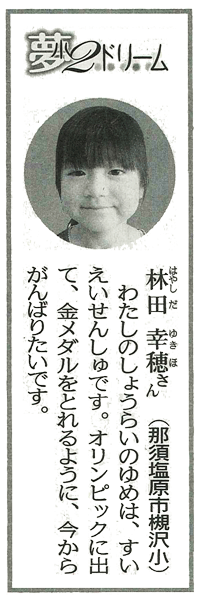 夢小2ドリーム
林田 幸穂さん
はやし だ ゆき ほ
(那須塩原市槻沢小)
わたしのしょうらいのゆめは、すい
えいせんしゅです。オリンピックに出
て、金メダルをとれるように、今から
がんばりたいです。